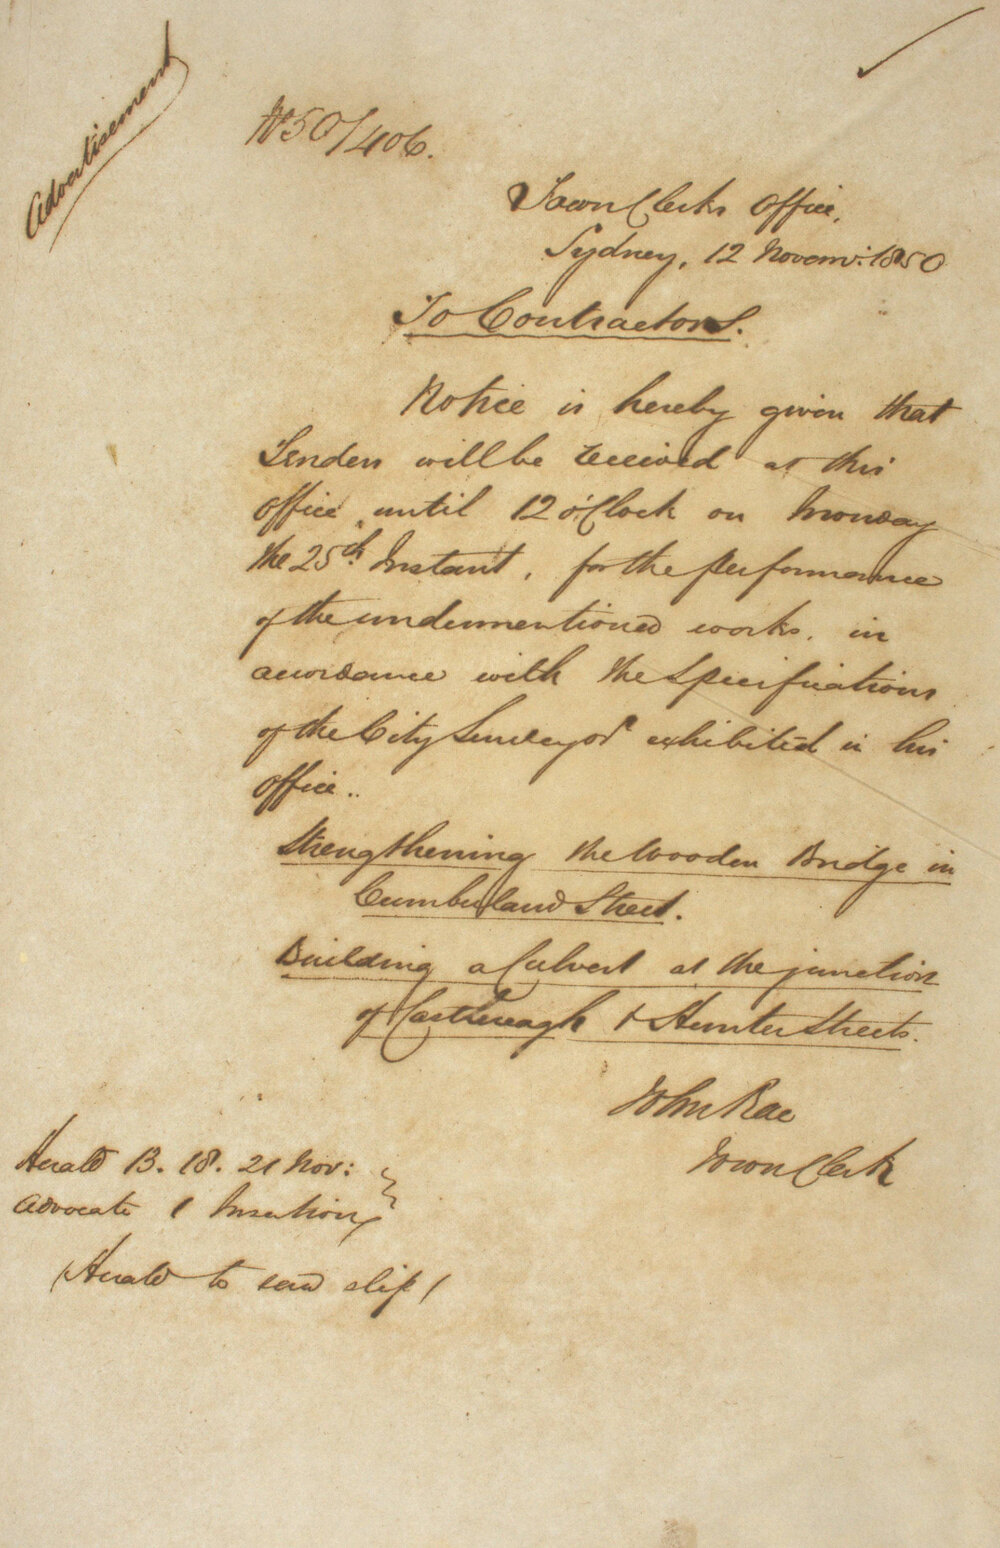 Advertisement
No 50/406.
Town Clerks Office,
Sydney, 12 Novemr: 1850
To Contractors.
Notice is hereby given that
Tenders will be received at this
Office until 12 o'Clock on Monday
the 25th Instant, for the performance
of the undermentioned works, in
accordance with the Specifications
of the City Surveyor exhibited in his
Office..
Strengthening the Wooden Bridge in
Cumberland Street.
Building a Culvert at the junction
of Castlereagh & Hunter Streets.
John Rae
Town Clerk
Herald 13. 18. 21 Nov:
Advocate 1 Insertion
(Herald to send slip)